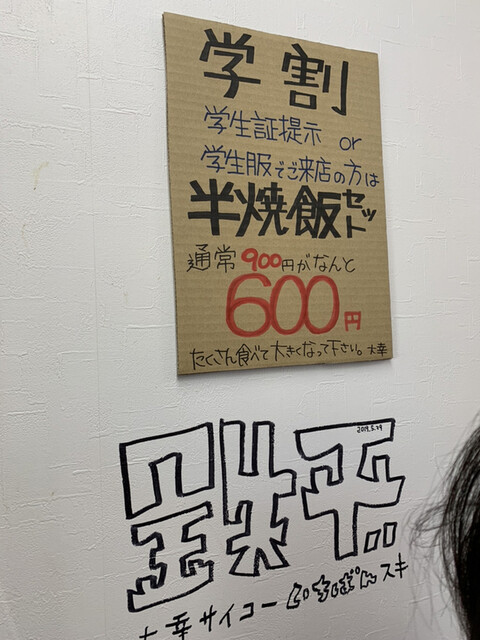 学割
学生証提示 or
学生服でご来店の方は
半焼飯セット
通常900円がなんと
600円
たくさん食べて大きくなって下さい。大幸
2019.5.29
大幸サイコーいちばんスキ